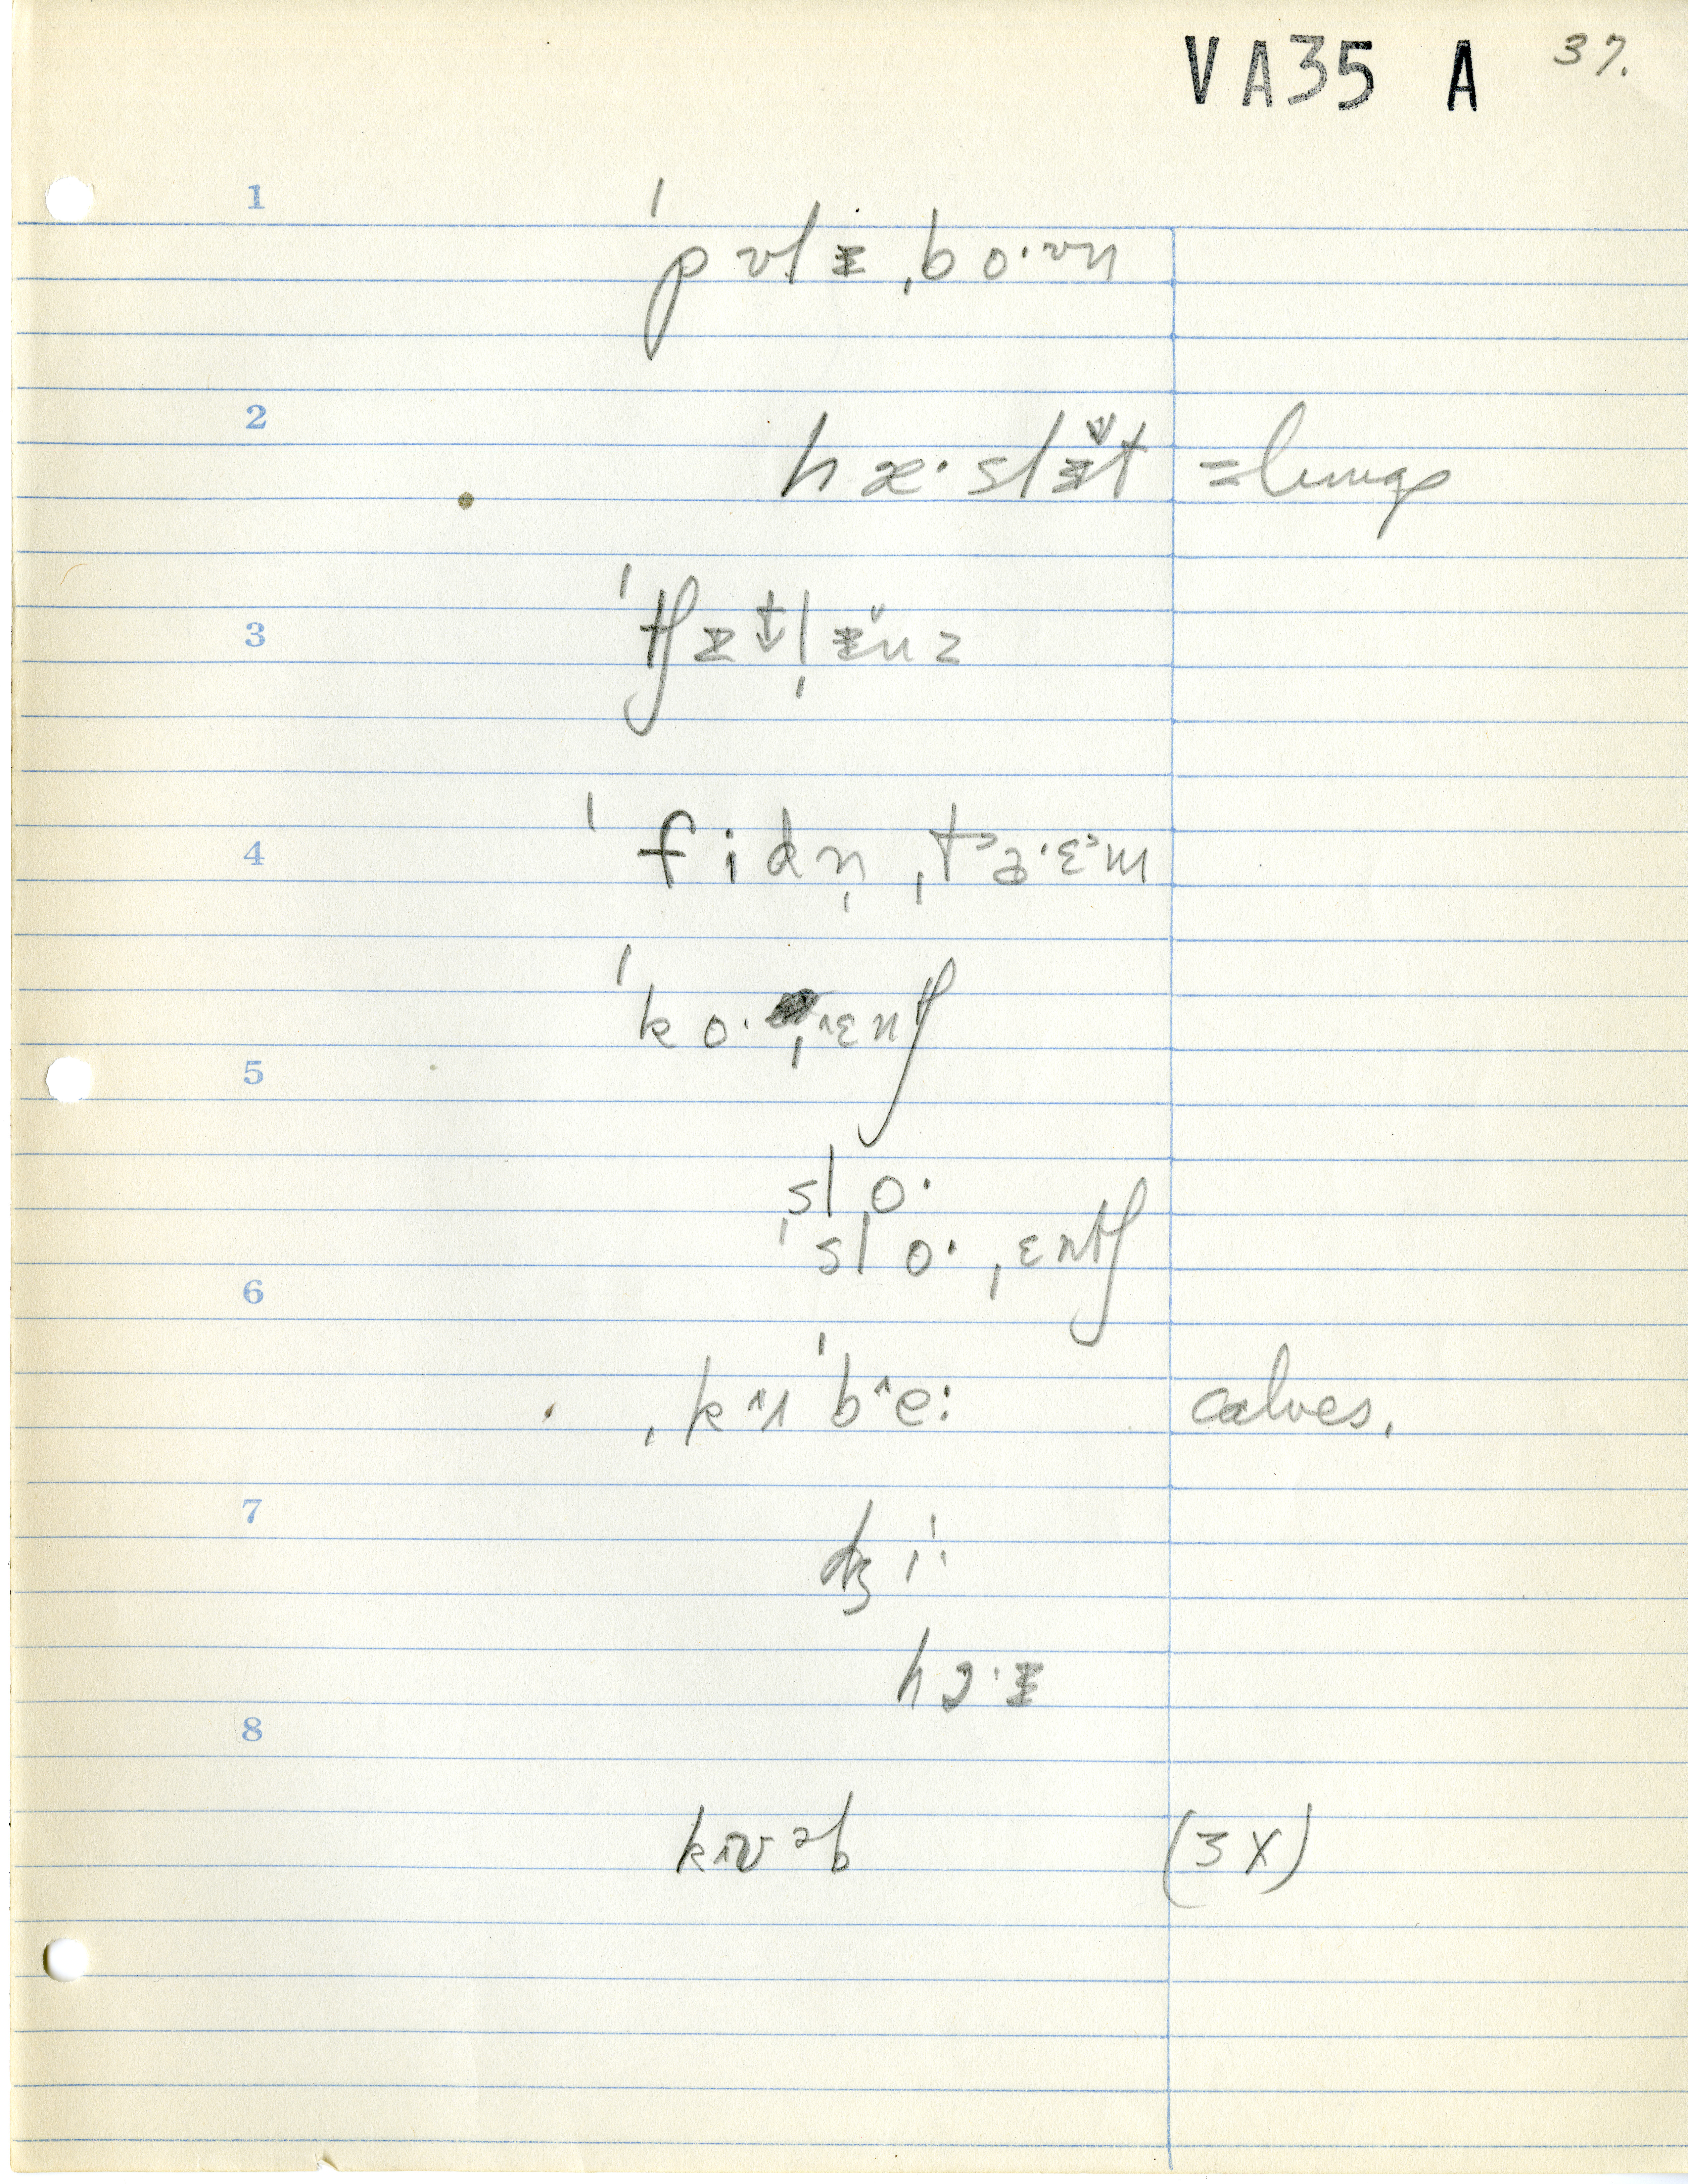 VA35 A 37.
1
ˈpʊlɨˌboˑʊn
2
hæˑslɨ̌t =lungs
3
ˈtʃɨt̬l̩ɨ̌nz
4
ˈfidn̩ ˌtɔˑɛm
ˈkoˑˌɛntʃ
5
sloˑ
ˈsloˑˌɛntʃ
6
ˌkʌɪˈbeː calves.
7
dʒiː
hɔˑɨ
8
kʌʊəb (3X)